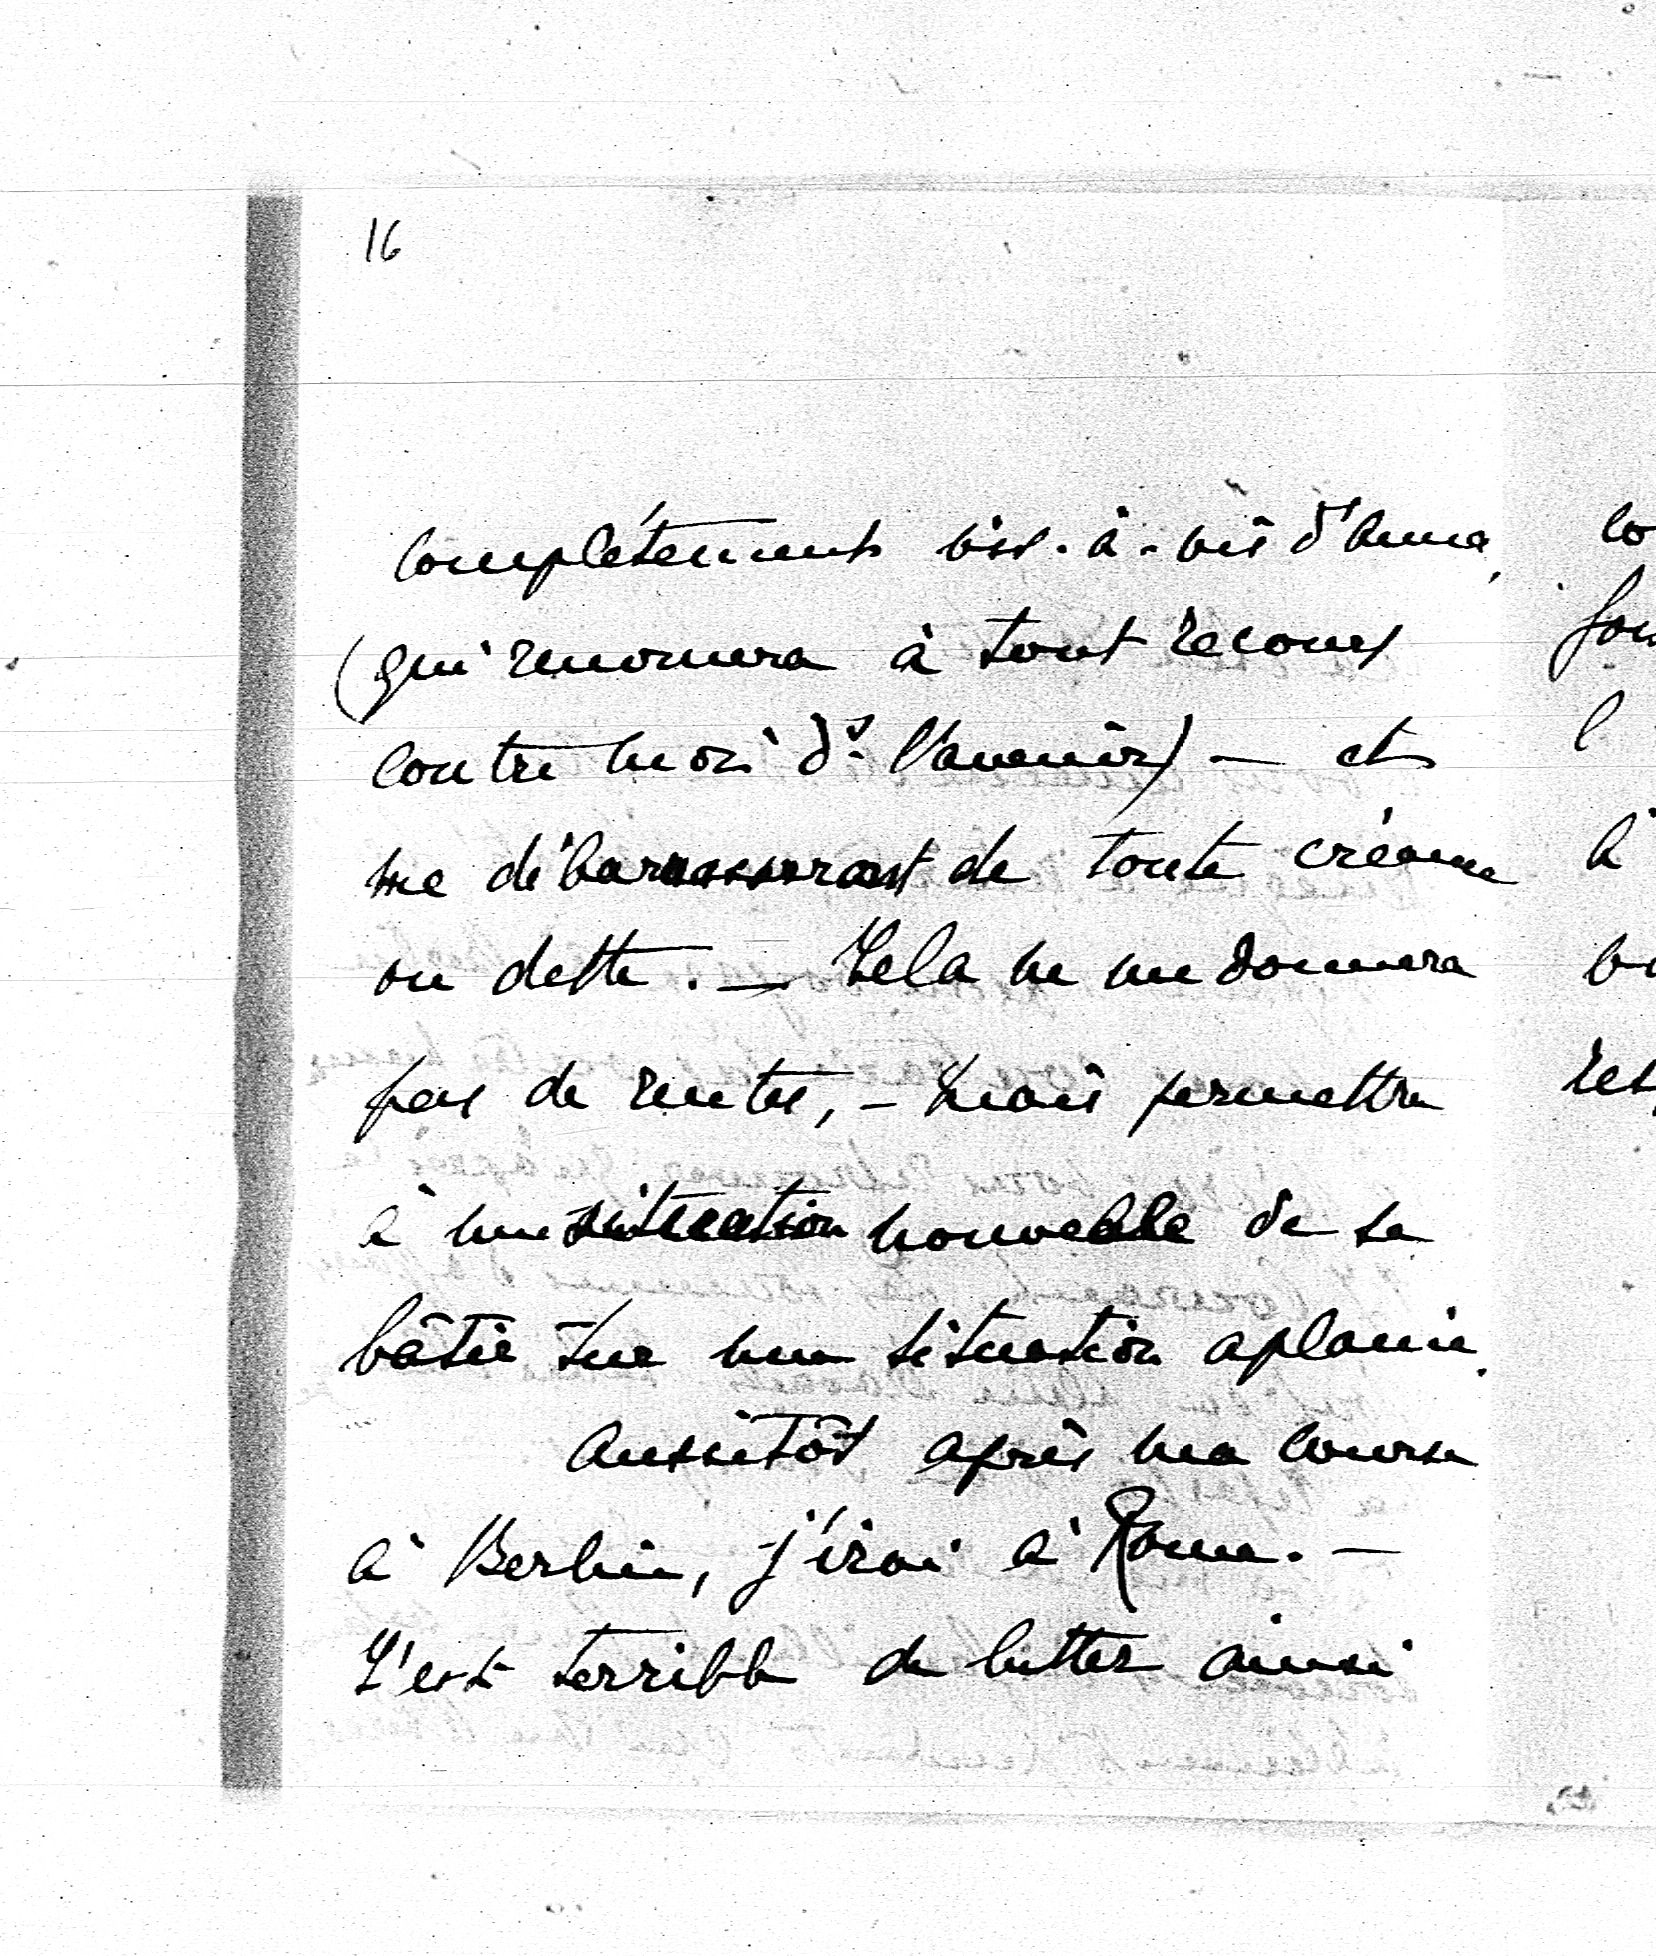 16
complétement vis-à-vis d'Anna,
(qui renoncera à tout recours
contre moi ds. l'avenir) — et
me débarrasserait de toute créance
ou dette. — Cela ne me donnera
pas de rentes, - mais permettra
à une situation nouvelle de se
bâtir sur une situation aplanie.
Aussitôt après ma course
à Berlin, j'irai à Rome. —
C'est terrible de lutter ainsi